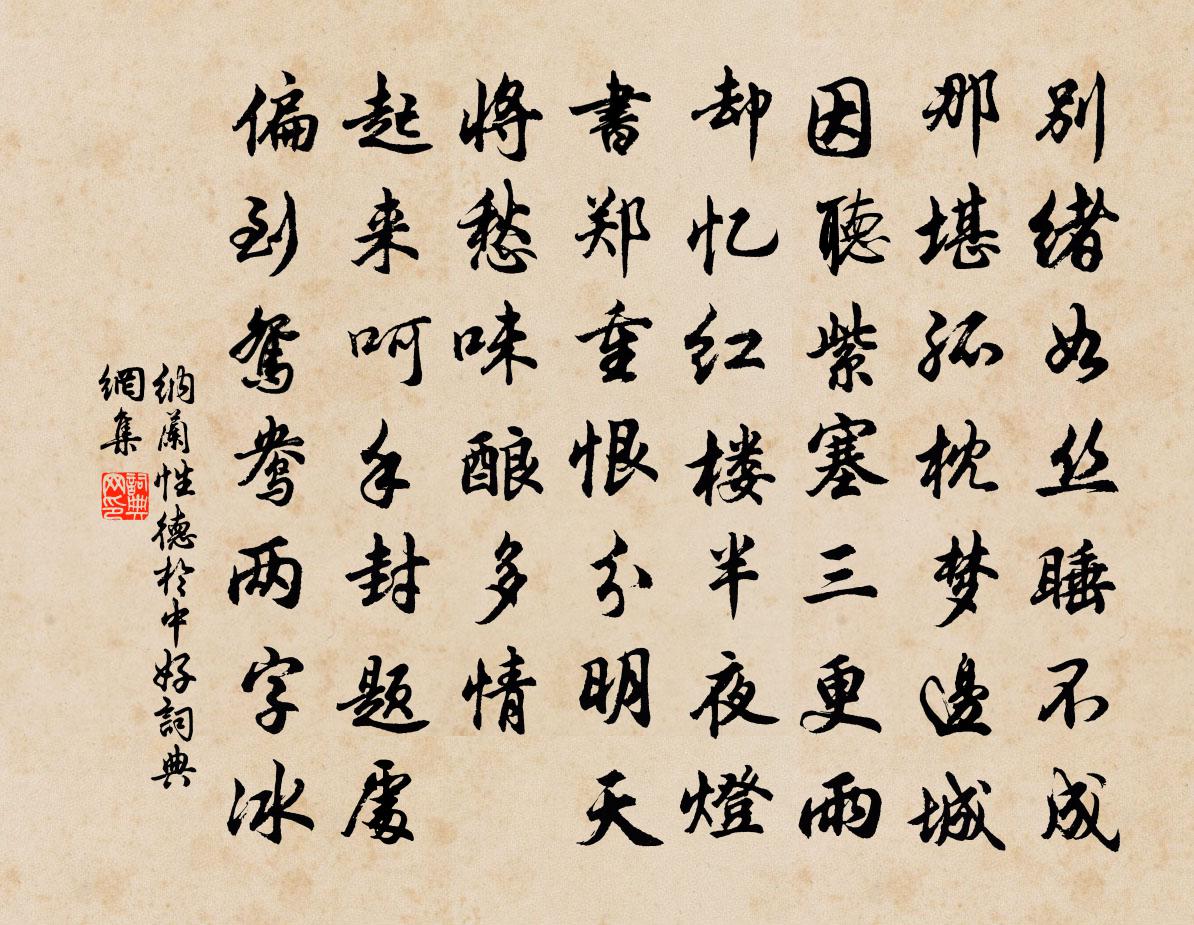 别绪如丝睡不成
那堪孤枕梦邊城
因聽紫塞三更雨
却忆红楼半夜燈
書郑重恨分明天
将愁味酿多情
起来呵手封题處
偏到鸳鸯两字冰
纳蘭性德於中好詞典
網集
詞典网印